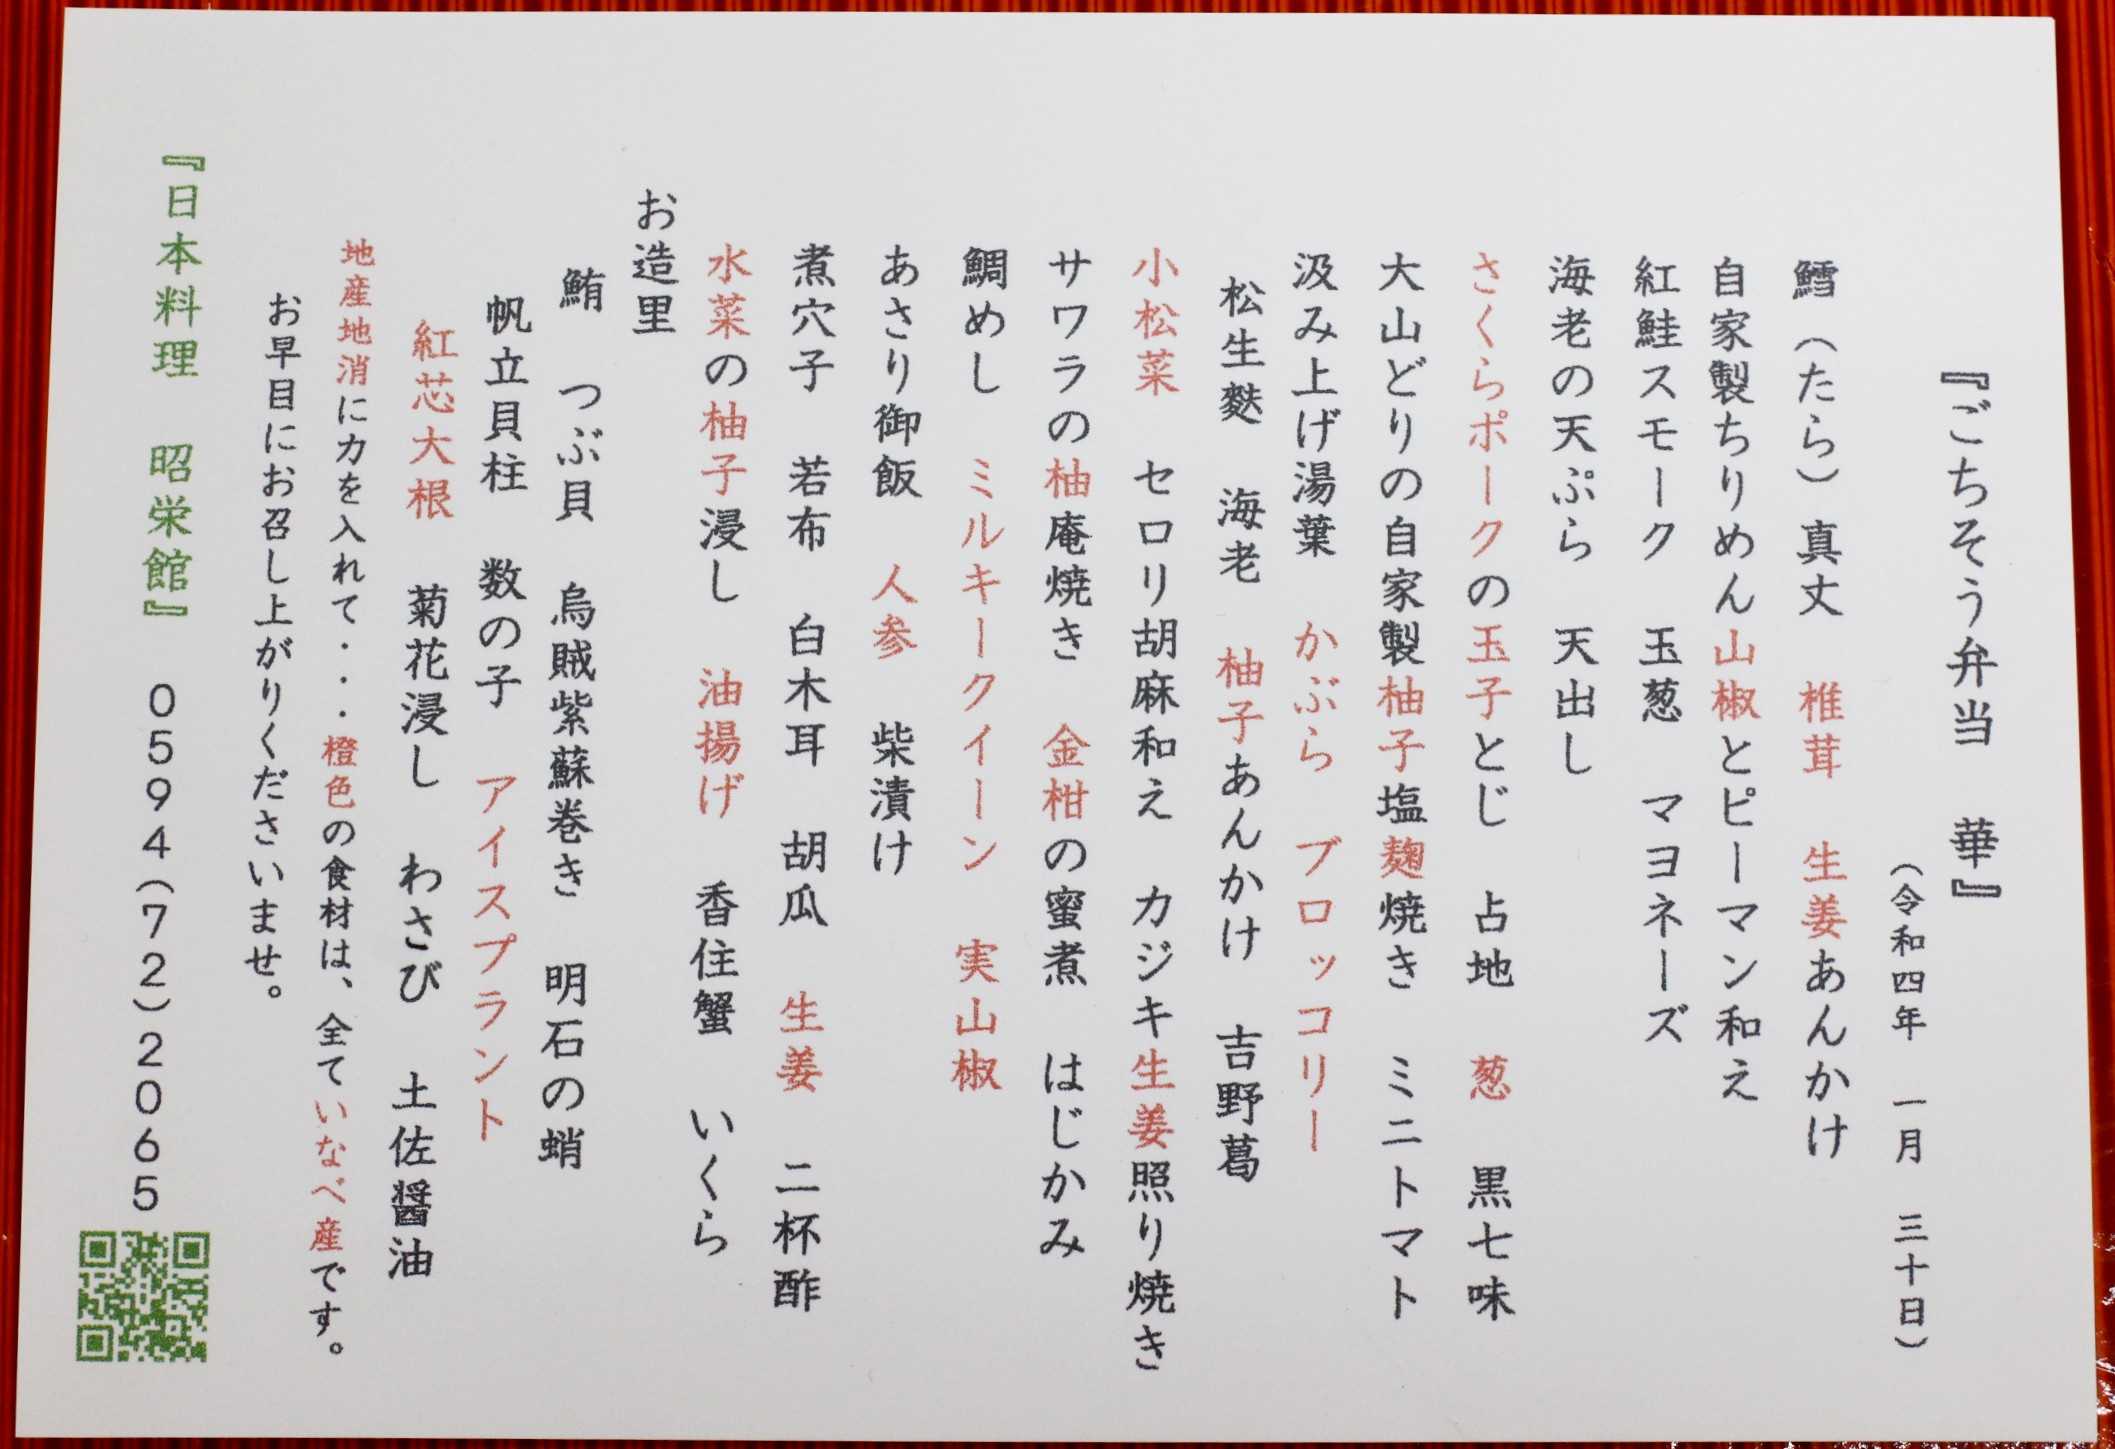 『ごちそう弁当　華』
（令和四年　一月　三十日）
鱈（たら）真丈　椎茸　生姜あんかけ
自家製ちりめん山椒とピーマン和え
紅鮭スモーク　玉葱　マヨネーズ
海老の天ぷら　天出し
さくらポークの玉子とじ　占地　葱　黒七味
大山どりの自家製柚子塩麹焼き　ミニトマト
汲み上げ湯葉　かぶら　ブロッコリー
松生麩　海老　柚子あんかけ　吉野葛
小松菜　セロリ胡麻和え　カジキ生姜照り焼き
サワラの柚庵焼き　金柑の蜜煮　はじかみ
鯛めし　ミルキークイーン　実山椒
あさり御飯　人参　柴漬け
煮穴子　若布　白木耳　胡瓜　生姜　二杯酢
水菜の柚子浸し　油揚げ　香住蟹　いくら
お造里
鮪　つぶ貝　烏賊紫蘇巻き　明石の蛸
帆立貝柱　数の子　アイスプラント
紅芯大根　菊花浸し　わさび　土佐醤油
地産地消に力を入れて・・・橙色の食材は、全ていなべ産です。
お早目にお召し上がりくださいませ。
『日本料理　昭栄館』　0594（72）2065